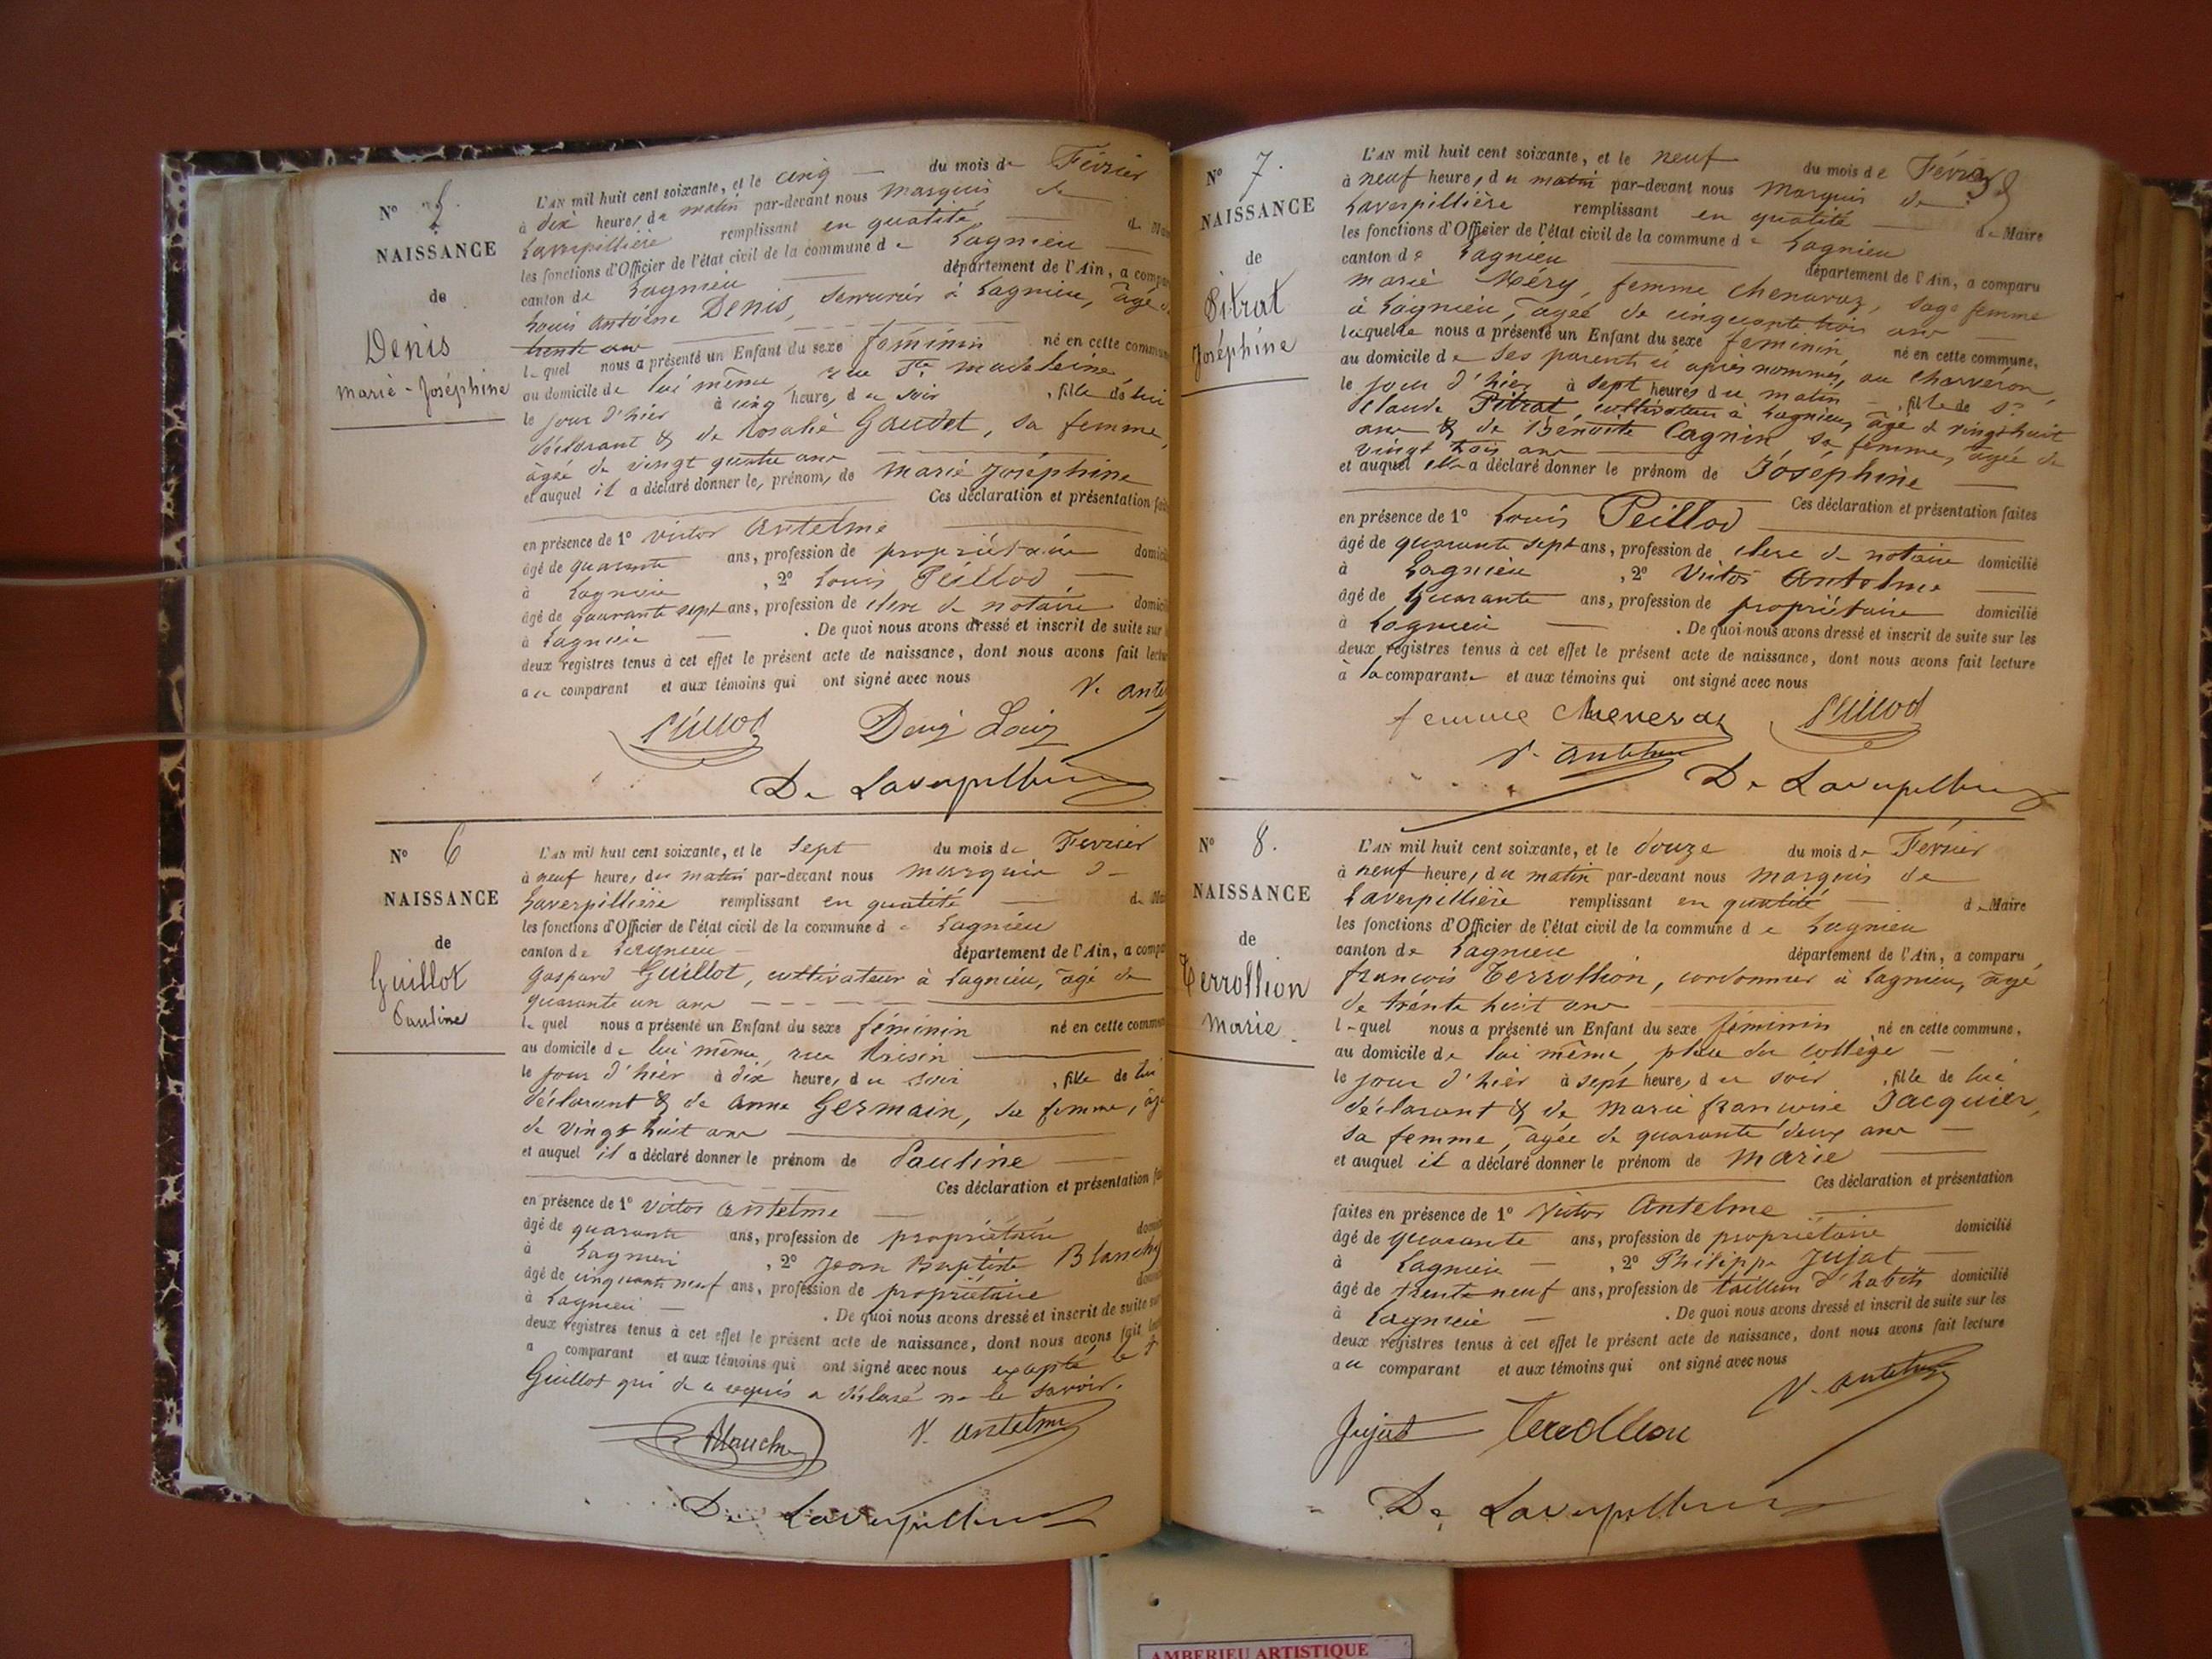 N° 5.
NAISSANCE
de
Denis
Marie-Joséphine
L'AN mil huit cent soixante, et le cinq du mois de Février
à dix heures du matin par-devant nous Marquis de
Laverpillière remplissant en qualité de
les fonctions d'Officier de l'état civil de la commune de Lagnieu
canton de Lagnieu département de l'Ain, a compar
Louis Antoine Denis, serrurier à Lagnieu, âgé de
trente ans
lequel nous a présenté un Enfant du sexe féminin né en cette commun
au domicile de lui même rue Ste Madeleine
le jour d'hier à cinq heures du soir, fille de lui
déclarant & de Rosalie Gaudet, sa femme,
âgée de vingt quatre ans
et auquel il a déclaré donner les prénoms de Marie Joséphine
Ces déclaration et présentation fai
en présence de 1° Victor Antelme
âgé de quarante ans, profession de propriétaire domici
à Lagnieu, 2° Louis Peillod
âgé de quarante sept ans, profession de clerc de notaire domici
à Lagnieu. De quoi nous avons dressé et inscrit de suite sur
deux registres tenus à cet effet le présent acte de naissance, dont nous avons fait lectu
au comparant et aux témoins qui ont signé avec nous
V. Ante
Peillod Denis Louis
De Laverpillière
N° 6
NAISSANCE
de
Guillot
Pauline
L'AN mil huit cent soixante, et le sept du mois de Fevrier
à neuf heures du matin par-devant nous Marquis de
Laverpillière remplissant en qualité de Mai
les fonctions d'Officier de l'état civil de la commune de Lagnieu
canton de Lagnieu département de l'Ain, a compa
Gaspard Guillot, cultivateur à Lagnieu, âgé de
quarante un ans
lequel nous a présenté un Enfant du sexe féminin né en cette commun
au domicile de lui même, rue Raisin
le jour d'hier à dix heures du soir, fille de lui
déclarant & de Anne Germain, sa femme, âg
de vingt huit ans
et auquel il a déclaré donner le prénom de Pauline
Ces déclaration et présentation fai
en présence de 1° Victor Antelme
âgé de quarante ans, profession de propriétaire domici
à Lagnieu, 2° Jean Baptiste Blanchy
âgé de cinquante neuf ans, profession de propriétaire domi
à Lagnieu. De quoi nous avons dressé et inscrit de suite sur
deux registres tenus à cet effet le présent acte de naissance, dont nous avons fait lect
a comparant et aux témoins qui ont signé avec nous excepté le
Guillot qui de ce requis a déclaré ne le savoir.
Blanchy V. Antelme
De Laverpillière
N° 7.
NAISSANCE
de
Pitrat
Joséphine
L'AN mil huit cent soixante, et le neuf du mois de Février
à neuf heures du matin par-devant nous Marquis de
Laverpillière remplissant en qualité de Maire
les fonctions d'Officier de l'état civil de la commune de Lagnieu
canton de Lagnieu département de l'Ain, a comparu
Marie Méry, femme Chenavaz, sage femme
à Lagnieu, âgée de cinquante trois ans
laquelle nous a présenté un Enfant du sexe féminin, né en cette commune,
au domicile de ses parents ci après nommés, au Charveron,
le jour d'hier à sept heures du matin, fille de Sr
Claude Pitrat, cultivateur à Lagnieu, âgé de vingt huit
ans & de Benoite Cagnin sa femme, âgée de
vingt trois ans
et auquel elle a déclaré donner le prénom de Joséphine
Ces déclaration et présentation faites
en présence de 1° Louis Peillod
âgé de quarante sept ans, profession de clerc de notaire domicilié
à Lagnieu, 2° Victor Antelme
âgé de quarante ans, profession de propriétaire domicilié
à Lagnieu. De quoi nous avons dressé et inscrit de suite sur les
deux registres tenus à cet effet le présent acte de naissance, dont nous avons fait lecture
à la comparante et aux témoins qui ont signé avec nous
femme Chenavaz Peillod
V. Antelme De Laverpillière
N° 8.
NAISSANCE
de
Terrollion
Marie
L'AN mil huit cent soixante, et le douze du mois de Février
à neuf heures du matin par-devant nous Marquis de
Laverpillière remplissant en qualité de Maire
les fonctions d'Officier de l'état civil de la commune de Lagnieu
canton de Lagnieu département de l'Ain, a comparu
François Terrollion, cordonnier à Lagnieu, âgé
de trente huit ans
lequel nous a présenté un Enfant du sexe féminin né en cette commune,
au domicile de lui même, place du collège
le jour d'hier à sept heures du soir, fille de lui
déclarant & de Marie Françoise Jacquier,
sa femme, âgée de quarante deux ans
et auquel il a déclaré donner le prénom de Marie
Ces déclaration et présentation
faites en présence de 1° Victor Antelme
âgé de quarante ans, profession de propriétaire domicilié
à Lagnieu, 2° Philippe Jujat
âgé de trente neuf ans, profession de tailleur d'habits domicilié
à Lagnieu. De quoi nous avons dressé et inscrit de suite sur les
deux registres tenus à cet effet le présent acte de naissance, dont nous avons fait lecture
au comparant et aux témoins qui ont signé avec nous
V. Antelme
Jujat Terrollion
De Laverpillière
AMBERIEU ARTISTIQUE